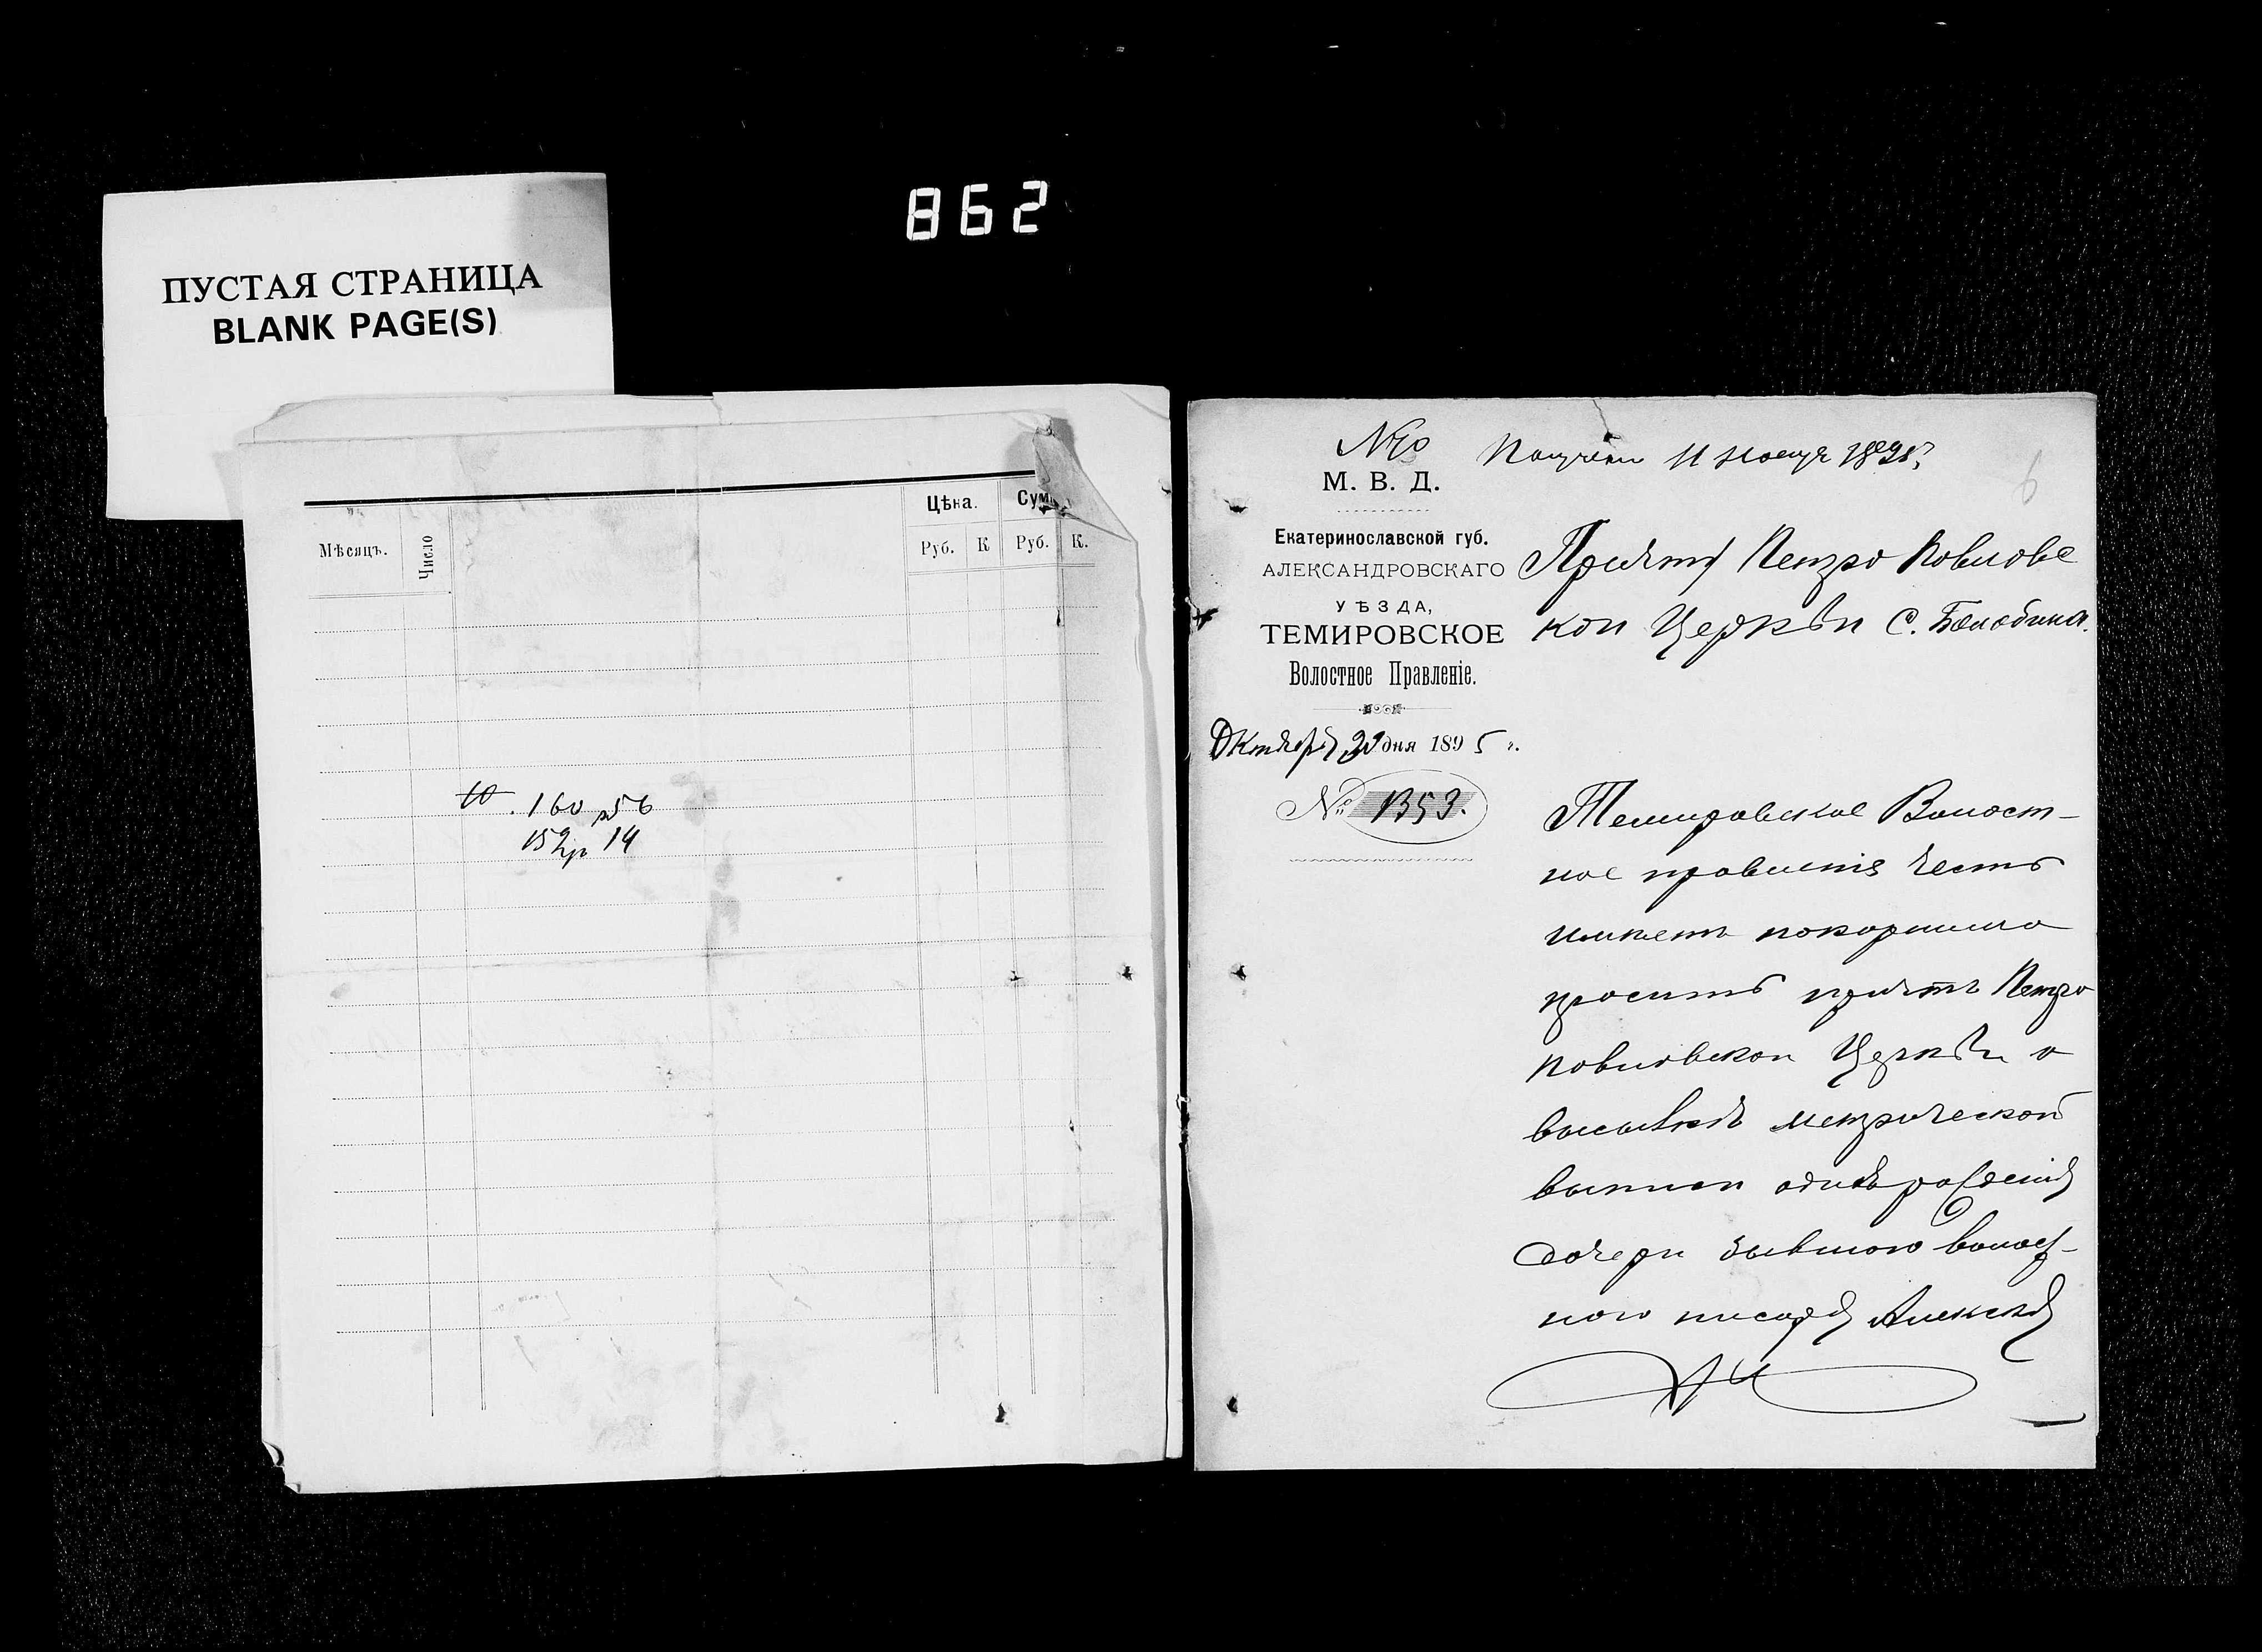 862
ПУСТАЯ СТРАНИЦА
BLANK PAGE(S)
Мѣсяцъ.
Число
Цѣна.
Сум
Руб.
К
Руб.
К.
160 р 56
152 р 14
6
Получено 11 1895 г.
М. В. Д.
Екатеринославской губ.
АЛЕКСАНДРОВСКАГО
УѢЗДА,
ТЕМИРОВСКОЕ
Волостное Правленіе.
Октября 30 дня 1895 г.
№ 1353.
Причту Петро Повловс
кои Церкви С. Болобина.
Темировское Волост-
ное правленіе честь
имѣетъ покорнишо
просить причтъ Петро
Повловскои Церкви о
высылкѣ метрической
выписи рожденія
дочери бывшого волост-
ного писаря Алексѣя